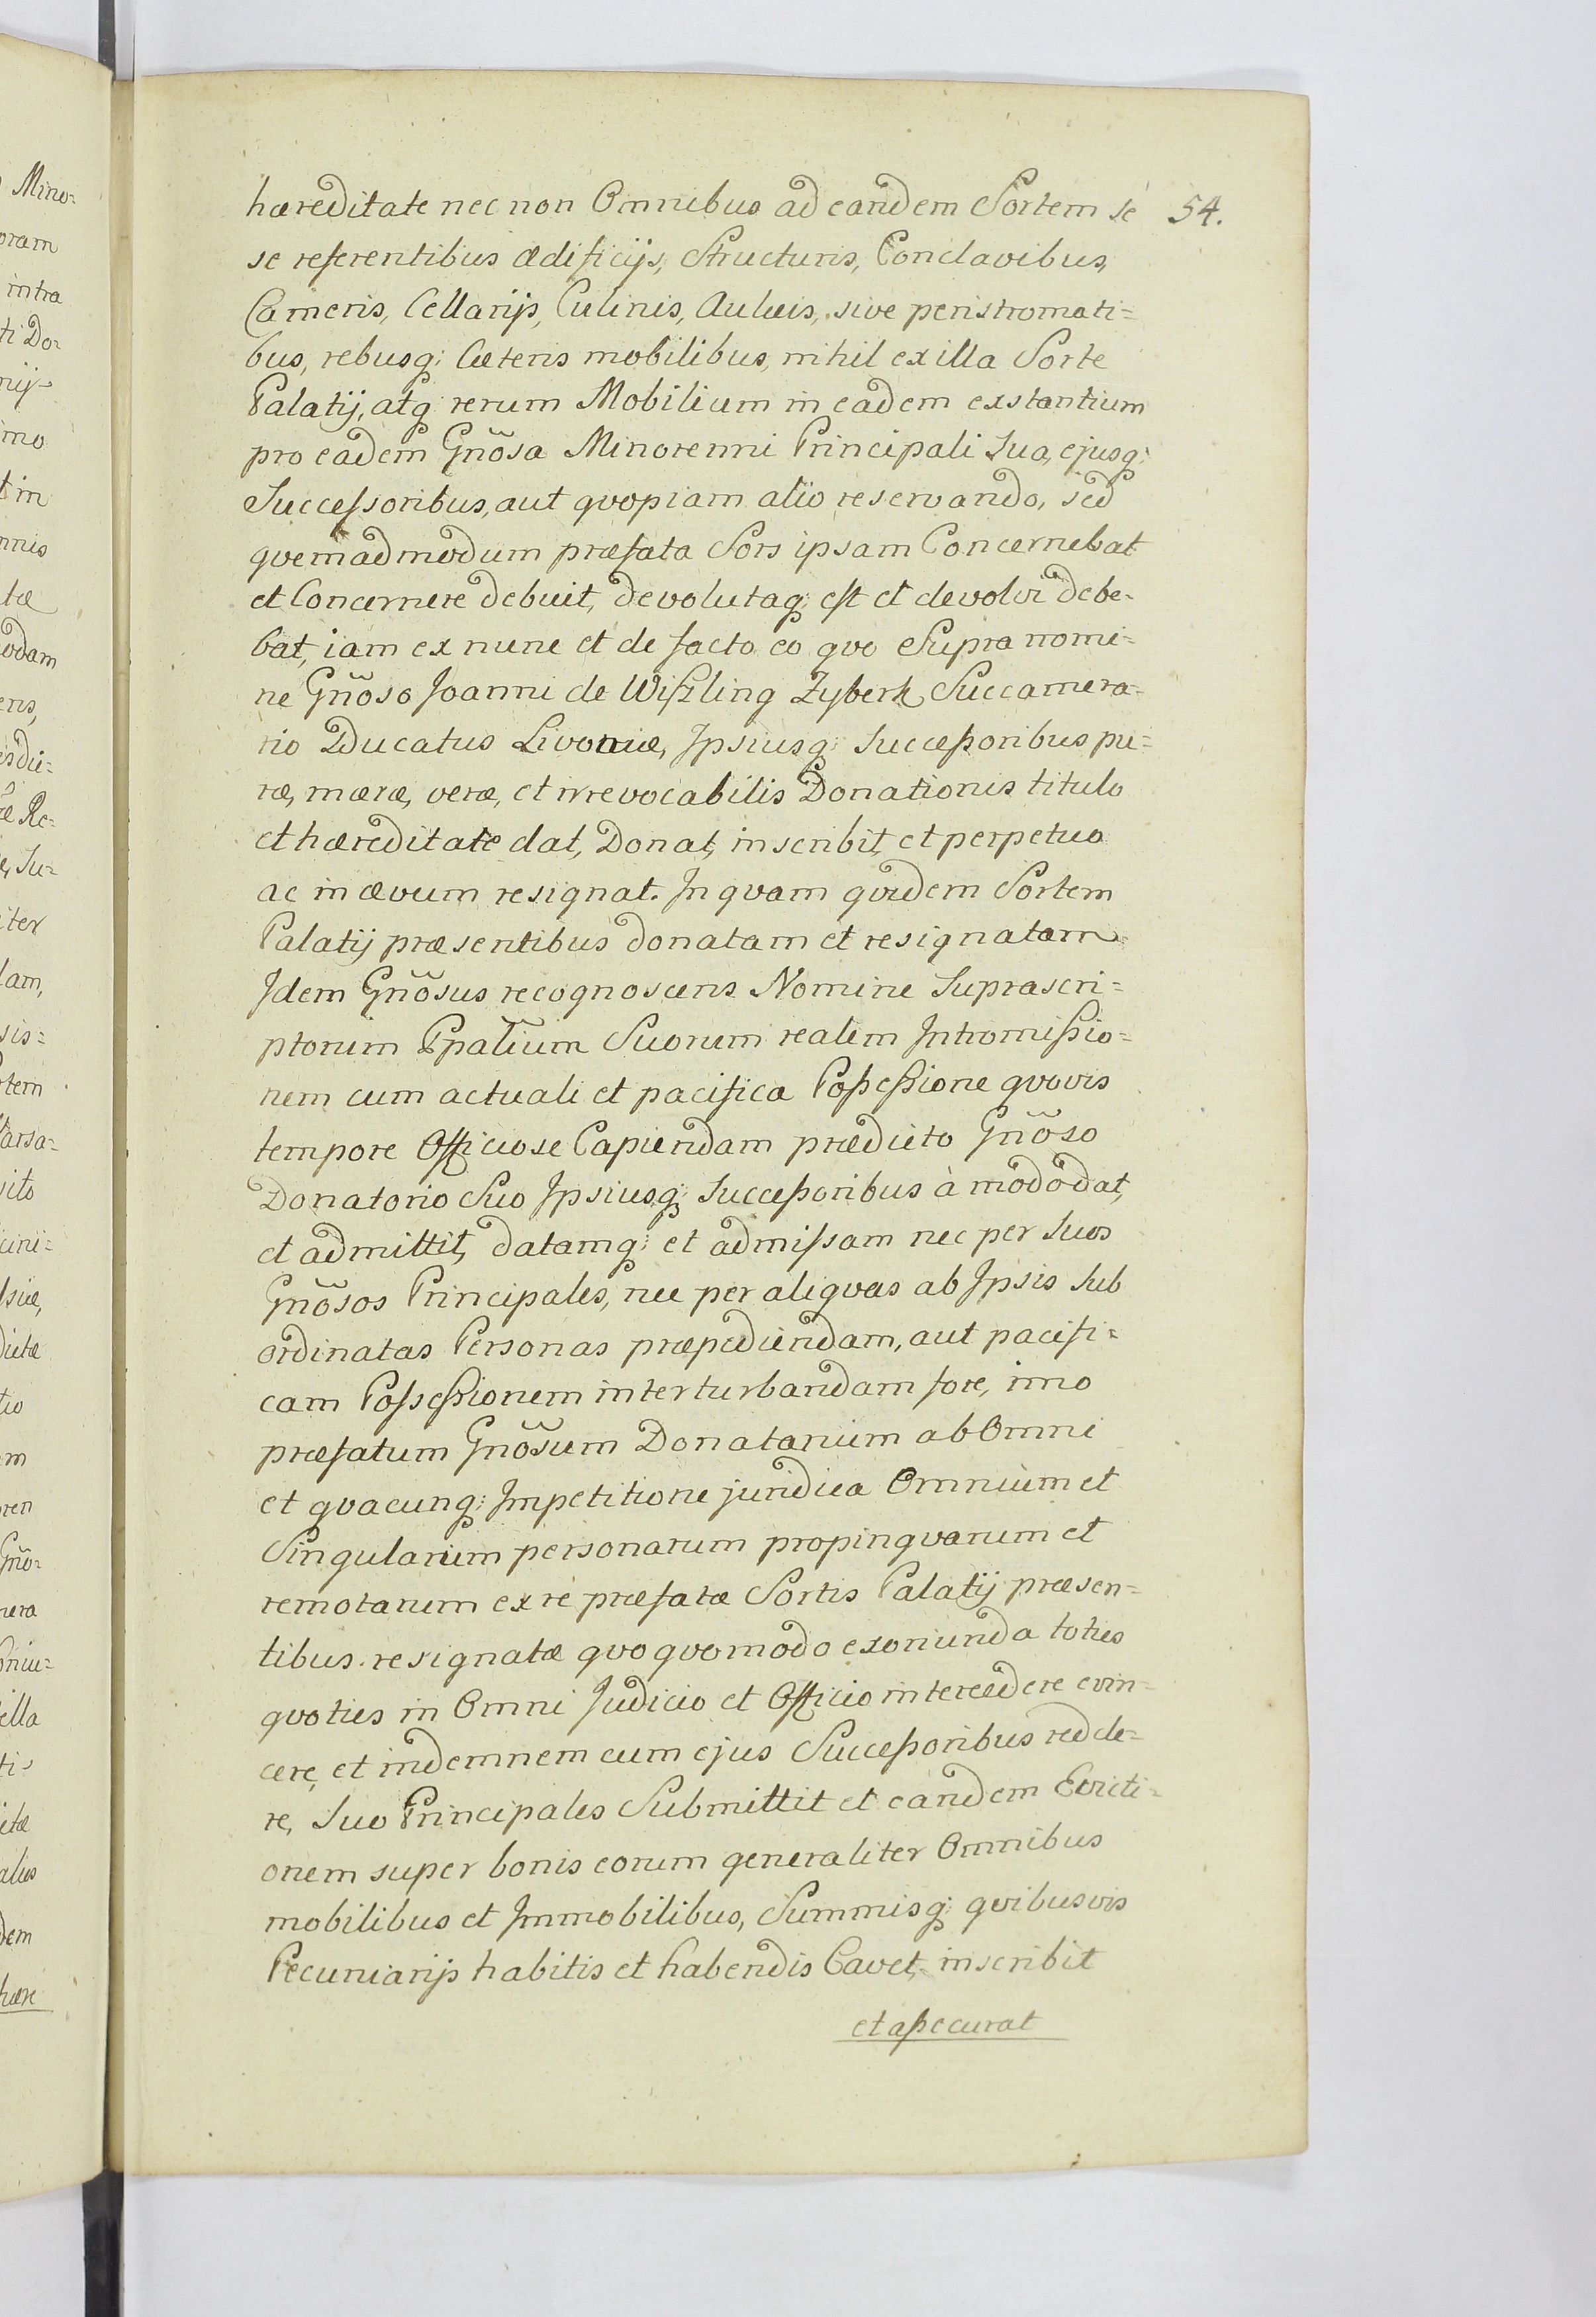 hæreditate nec non Omnibus ad eandem Sortem sè 54.
se referentibus ædificijs, Structuris, Conclavibus,
Cameris, Cellarijs, Culinis, Aulæis, sive peristromati=
bus, rebusq; Cæteris mobilibus, nihil ex illa Sorte
Palatij, atq rerum Mobilium in eadem exstantium
pro eadem Gnõsa Minorenni Principali Sua, ejusq;
Successoribus, aut qvopiam alio reservando, sed
qvemadmodum præfata Sors ipsam Concernebat
et Concernere debuit, devolutaq; est et devolvi debe=
bat, iam ex nunc et de facto eo qvo Supra nomi=
ne Gnõso Joanni de Wiszling Zyberk Succamera=
rio Ducatus Livoniæ, Ipsiusq; Successoribus pu=
ræ, meræ, veræ, et irrevocabilis Donationis titulo
et hæreditate dat, Donat, inscribit, et perpetuo
ac in ævum resignat. In qvam qvidem Sortem
Palatij præsentibus donatam et resignatam
Idem Gnõsus recognoscens Nomine Suprascri=
ptorum Ppalium Suorum realem Intromissio=
nem cum actuali et pacifica Possessione qvovis
tempore Officiose Capiendam prædicto Gnõso
Donatorio Suo Ipsiusq; Successoribus à modo dat,
et admittit, datamq; et admissam nec per Suos
Gnõsos Principales, nec per aliqvas ab Ipsis Sub
ordinatas Personas præpediendam, aut pacifi=
cam Possessionem interturbandam fore, imo
præfatum Gnõsum Donatarium ab Omni
et qvacunq; Impetitione juridica Omnium et
Singularum personarum propinqvarum et
remotarum ex re præfatæ Sortis Palatij præsen=
tibus resignatæ qvoqvomodo exoriunda toties
qvoties in Omni Judicio et Officio intercedere evin=
cere, et indemnem cum ejus Successoribus redde=
re, Suo Principales Submittit et eandem Evicti=
onem super bonis eorum generaliter Omnibus
mobilibus et Immobilibus, Summisq; qvibusvis
Pecuniarijs habitis et habendis Cavet, inscribit
et assecurat